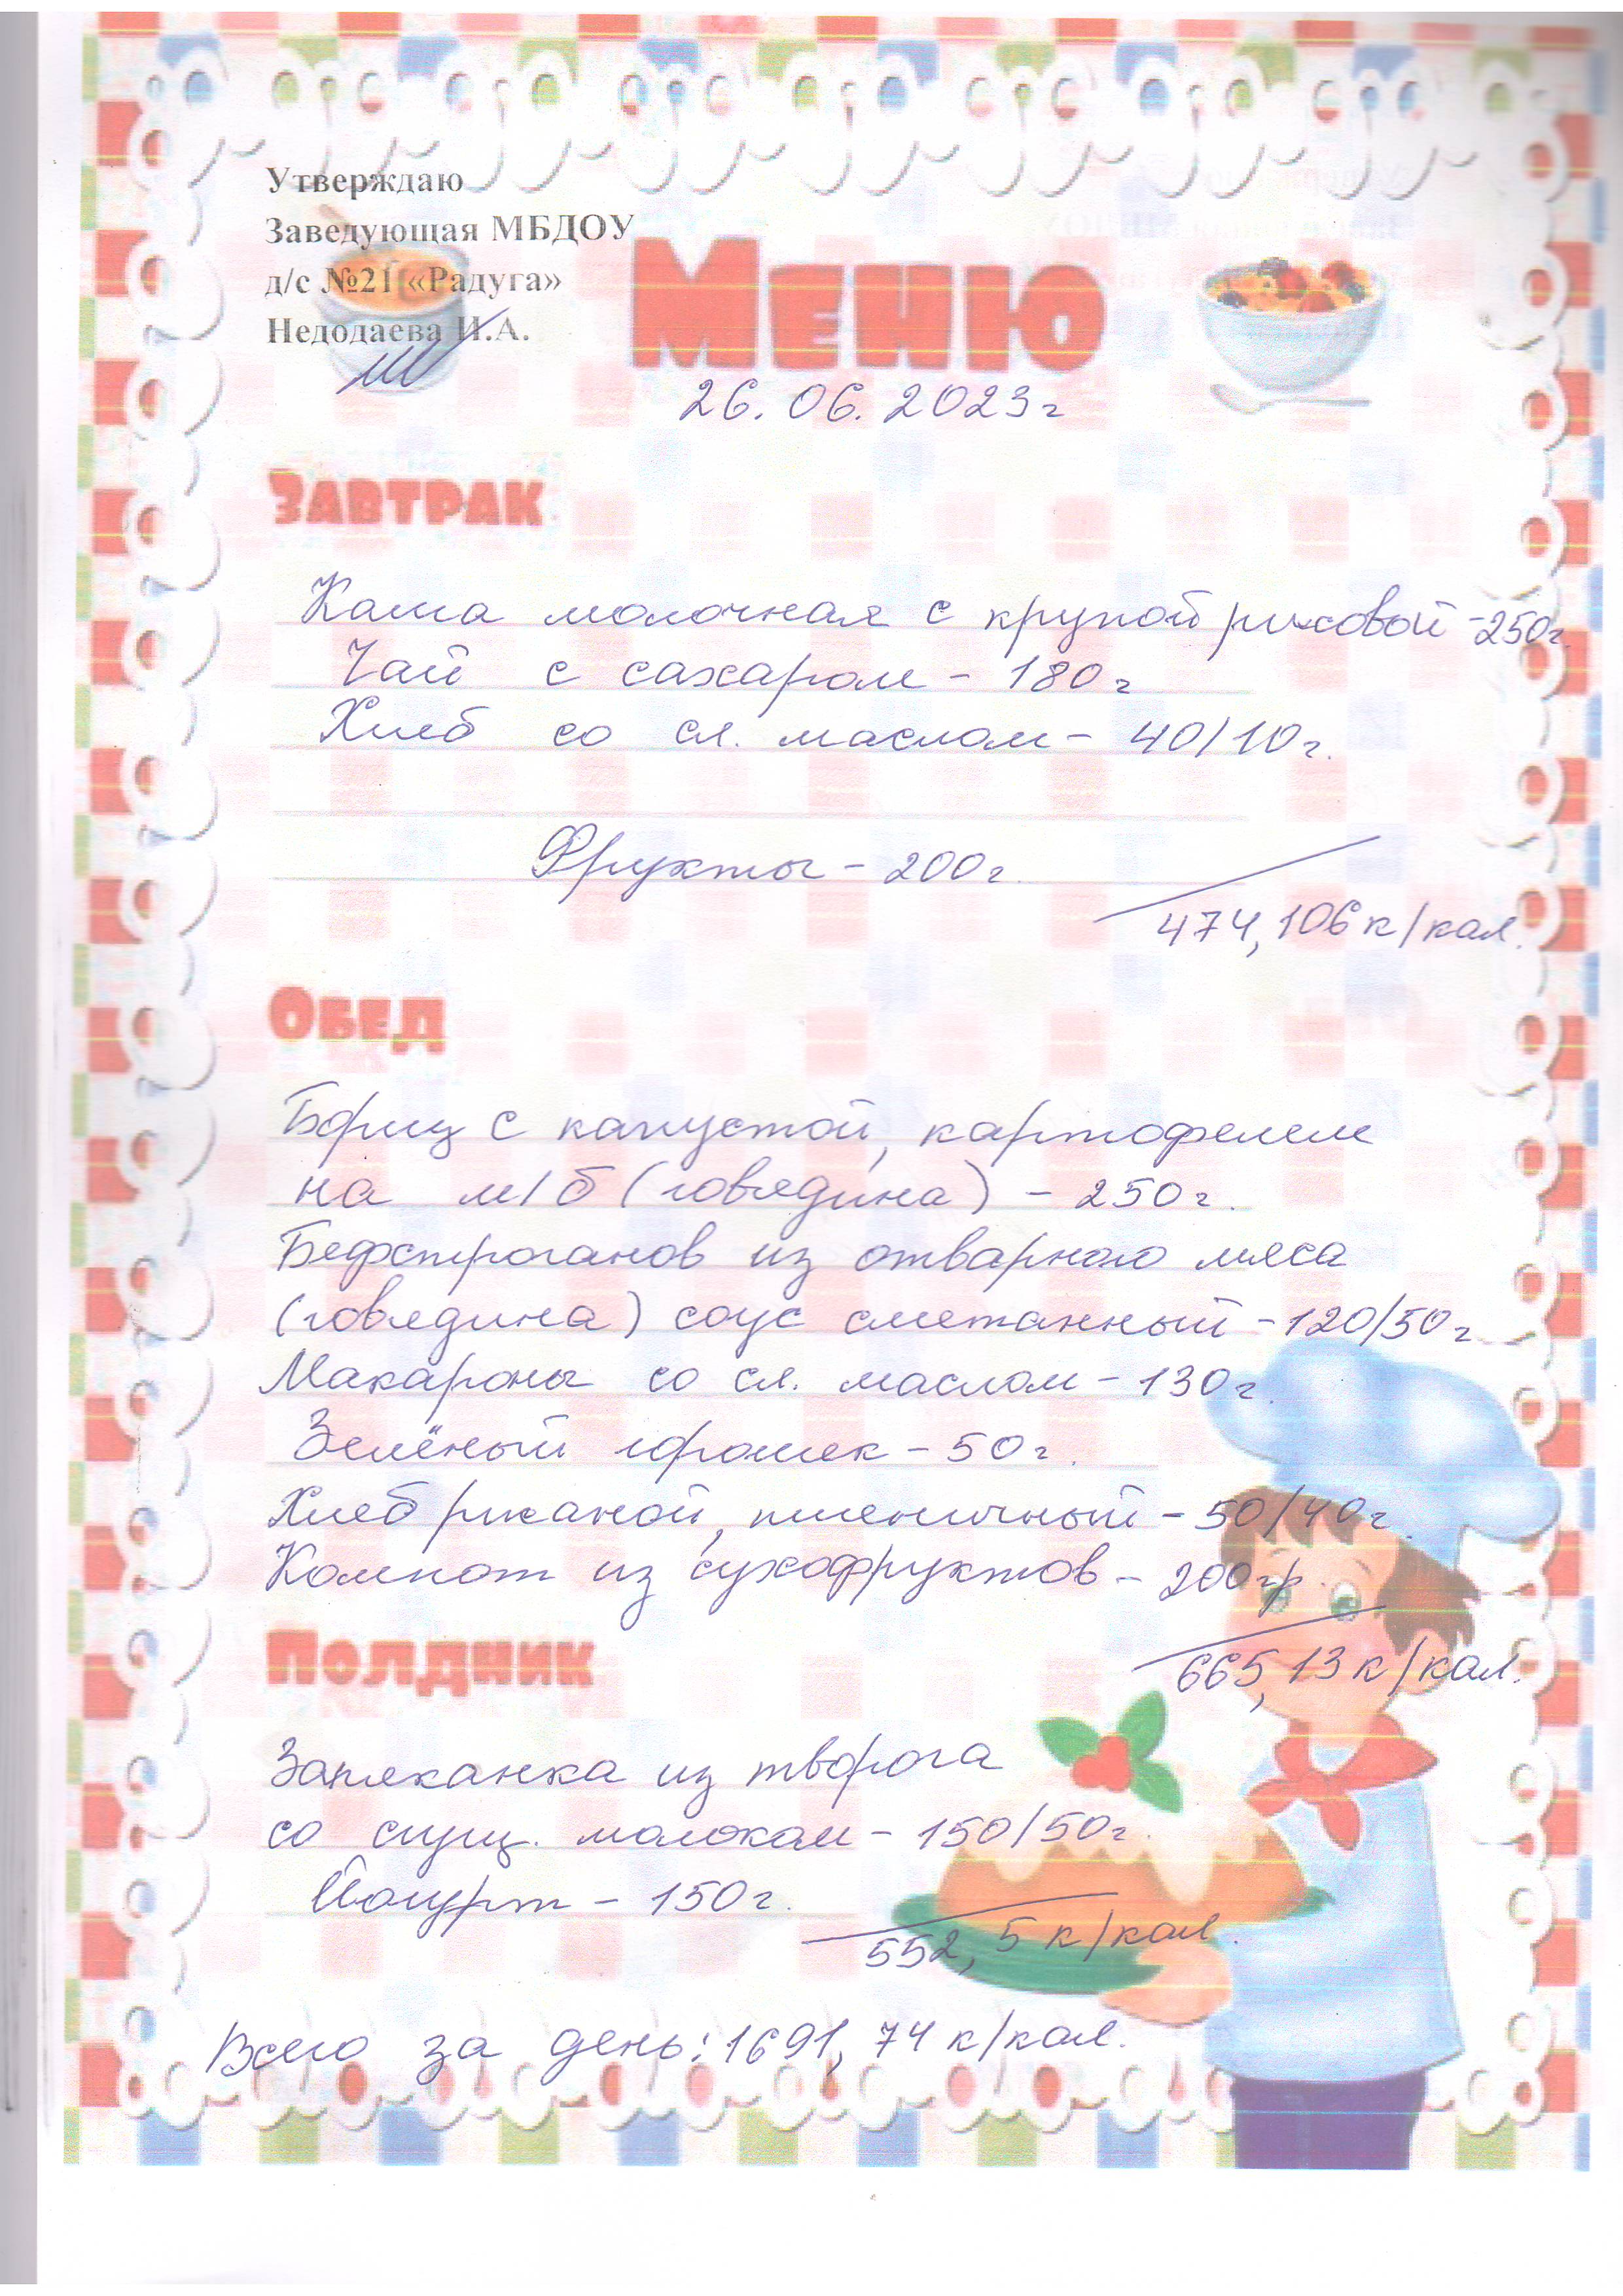 Утверждаю
Заведующая МБДОУ
д/с №21 «Радуга»
Недодаева И.А.
Меню
26.06.2023г
Завтрак
Каша молочная с крупой рисовой -250г.
Чай с сахаром - 180г
Хлеб со сл. маслом - 40/10г.
Фрукты - 200г.
474,106 к/кал.
Обед
Борщ с капустой, картофелем
на м/б (говядина) - 250г.
Бефстроганов из отварного мяса
(говядина) соус сметанный - 120/50г
Макароны со сл. маслом - 130г.
Зелёный горошек - 50г.
Хлеб ржаной, пшеничный - 50/40г.
Компот из сухофруктов - 200гр.
665,13 к/кал.
Полдник
Запеканка из творога
со сгущ. молоком - 150/50г.
Йогурт - 150г.
552,5 к/кал.
Всего за день: 1691,74 к/кал.